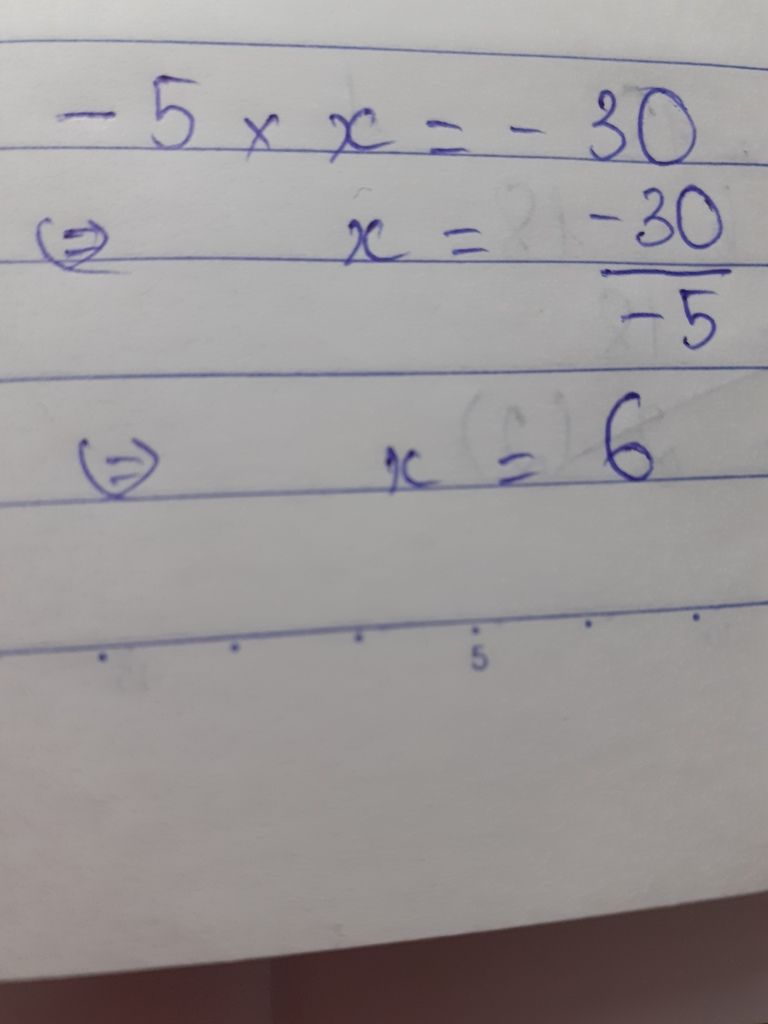 - 5 × x = - 30
(⇒) x = -30
-5
(⇒) x = 6
5